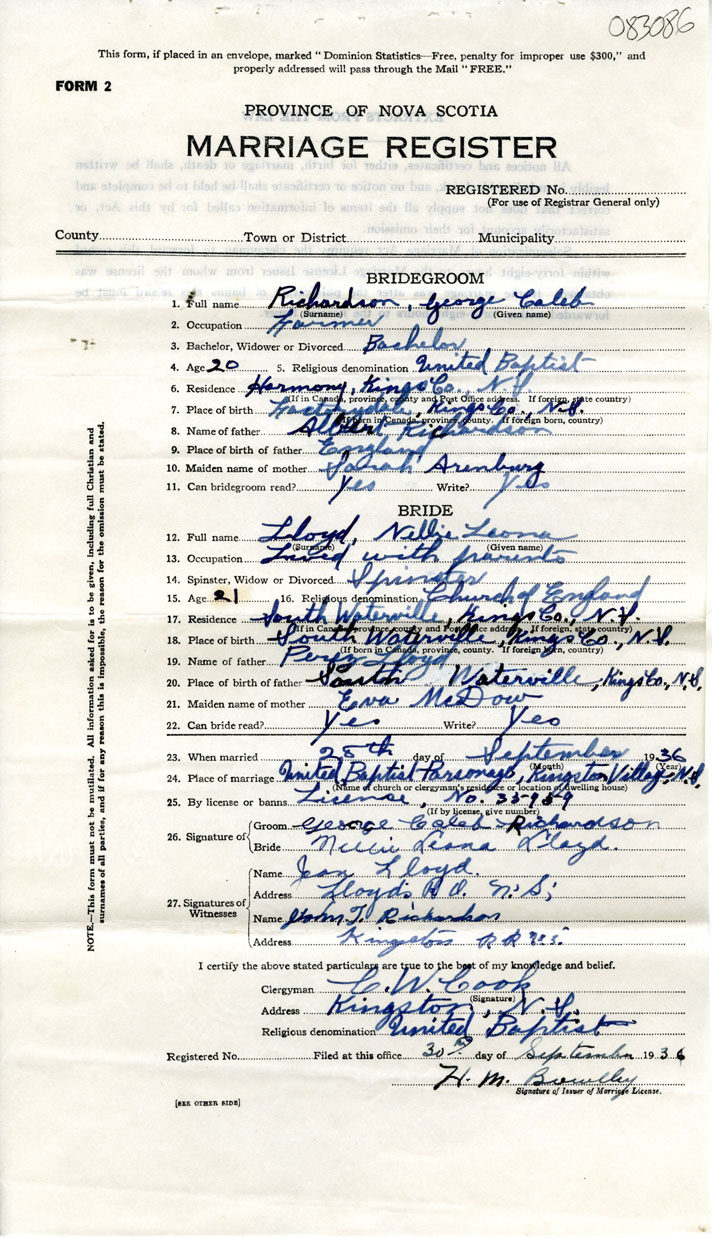 083086
This form, if placed in an envelope, marked "Dominion Statistics—Free, penalty for improper use $300," and
properly addressed will pass through the Mail "FREE."
FORM 2
PROVINCE OF NOVA SCOTIA
MARRIAGE REGISTER
REGISTERED No.
(For use of Registrar General only)
County Town or District Municipality
BRIDEGROOM
1. Full name Richardson, George Caleb
(Surname) (Given name)
2. Occupation Farmer
3. Bachelor, Widower or Divorced Bachelor
4. Age 20 5. Religious denomination United Baptist
6. Residence Harmony, Kings Co., N.S.
(If in Canada, province, county and Post Office address. If foreign, state country)
7. Place of birth Factorydale, Kings Co., N.S.
(If born in Canada, province, county. If foreign born, country)
8. Name of father Albert Richardson
9. Place of birth of father England
10. Maiden name of mother Sarah Arenburg
11. Can bridegroom read? Yes Write? Yes
BRIDE
12. Full name Lloyd, Nellie Leona
(Surname) (Given name)
13. Occupation Lived with parents
14. Spinster, Widow or Divorced Spinster
15. Age 21 16. Religious denomination Church of England
17. Residence South Waterville, Kings Co., N.S.
(If in Canada, province, county and Post Office address. If foreign, state country)
18. Place of birth South Waterville, Kings Co., N.S.
(If born in Canada, province, county. If foreign born, country)
19. Name of father Percy Lloyd
20. Place of birth of father South Waterville, Kings Co., N.S.
21. Maiden name of mother Eva McDow
22. Can bride read? Yes Write? Yes
23. When married 25th day of September 1936
(Month) (Year)
24. Place of marriage United Baptist Parsonage, Kingston Village, N.S.
(Name of church or clergyman's residence or location of dwelling house)
25. By license or banns License, No. 35959
(If by license, give number)
26. Signature of Groom George Caleb Richardson
Bride Nellie Leona Lloyd.
27. Signatures of Witnesses
Name Jean Lloyd.
Address Lloyds P.O. N.S;
Name John T. Richardson
Address Kingston R R N.S.
I certify the above stated particulars are true to the best of my knowledge and belief.
Clergyman C. W. Cook
(Signature)
Address Kingston, N.S.
Religious denomination United Baptist
Registered No. Filed at this office 30th day of September 1936
H. M.
Signature of Issuer of Marriage License.
[SEE OTHER SIDE]
NOTE.—This form must not be mutilated. All information asked for is to be given, including full Christian and
surnames of all parties, and if for any reason this is impossible, the reason for the omission must be stated.